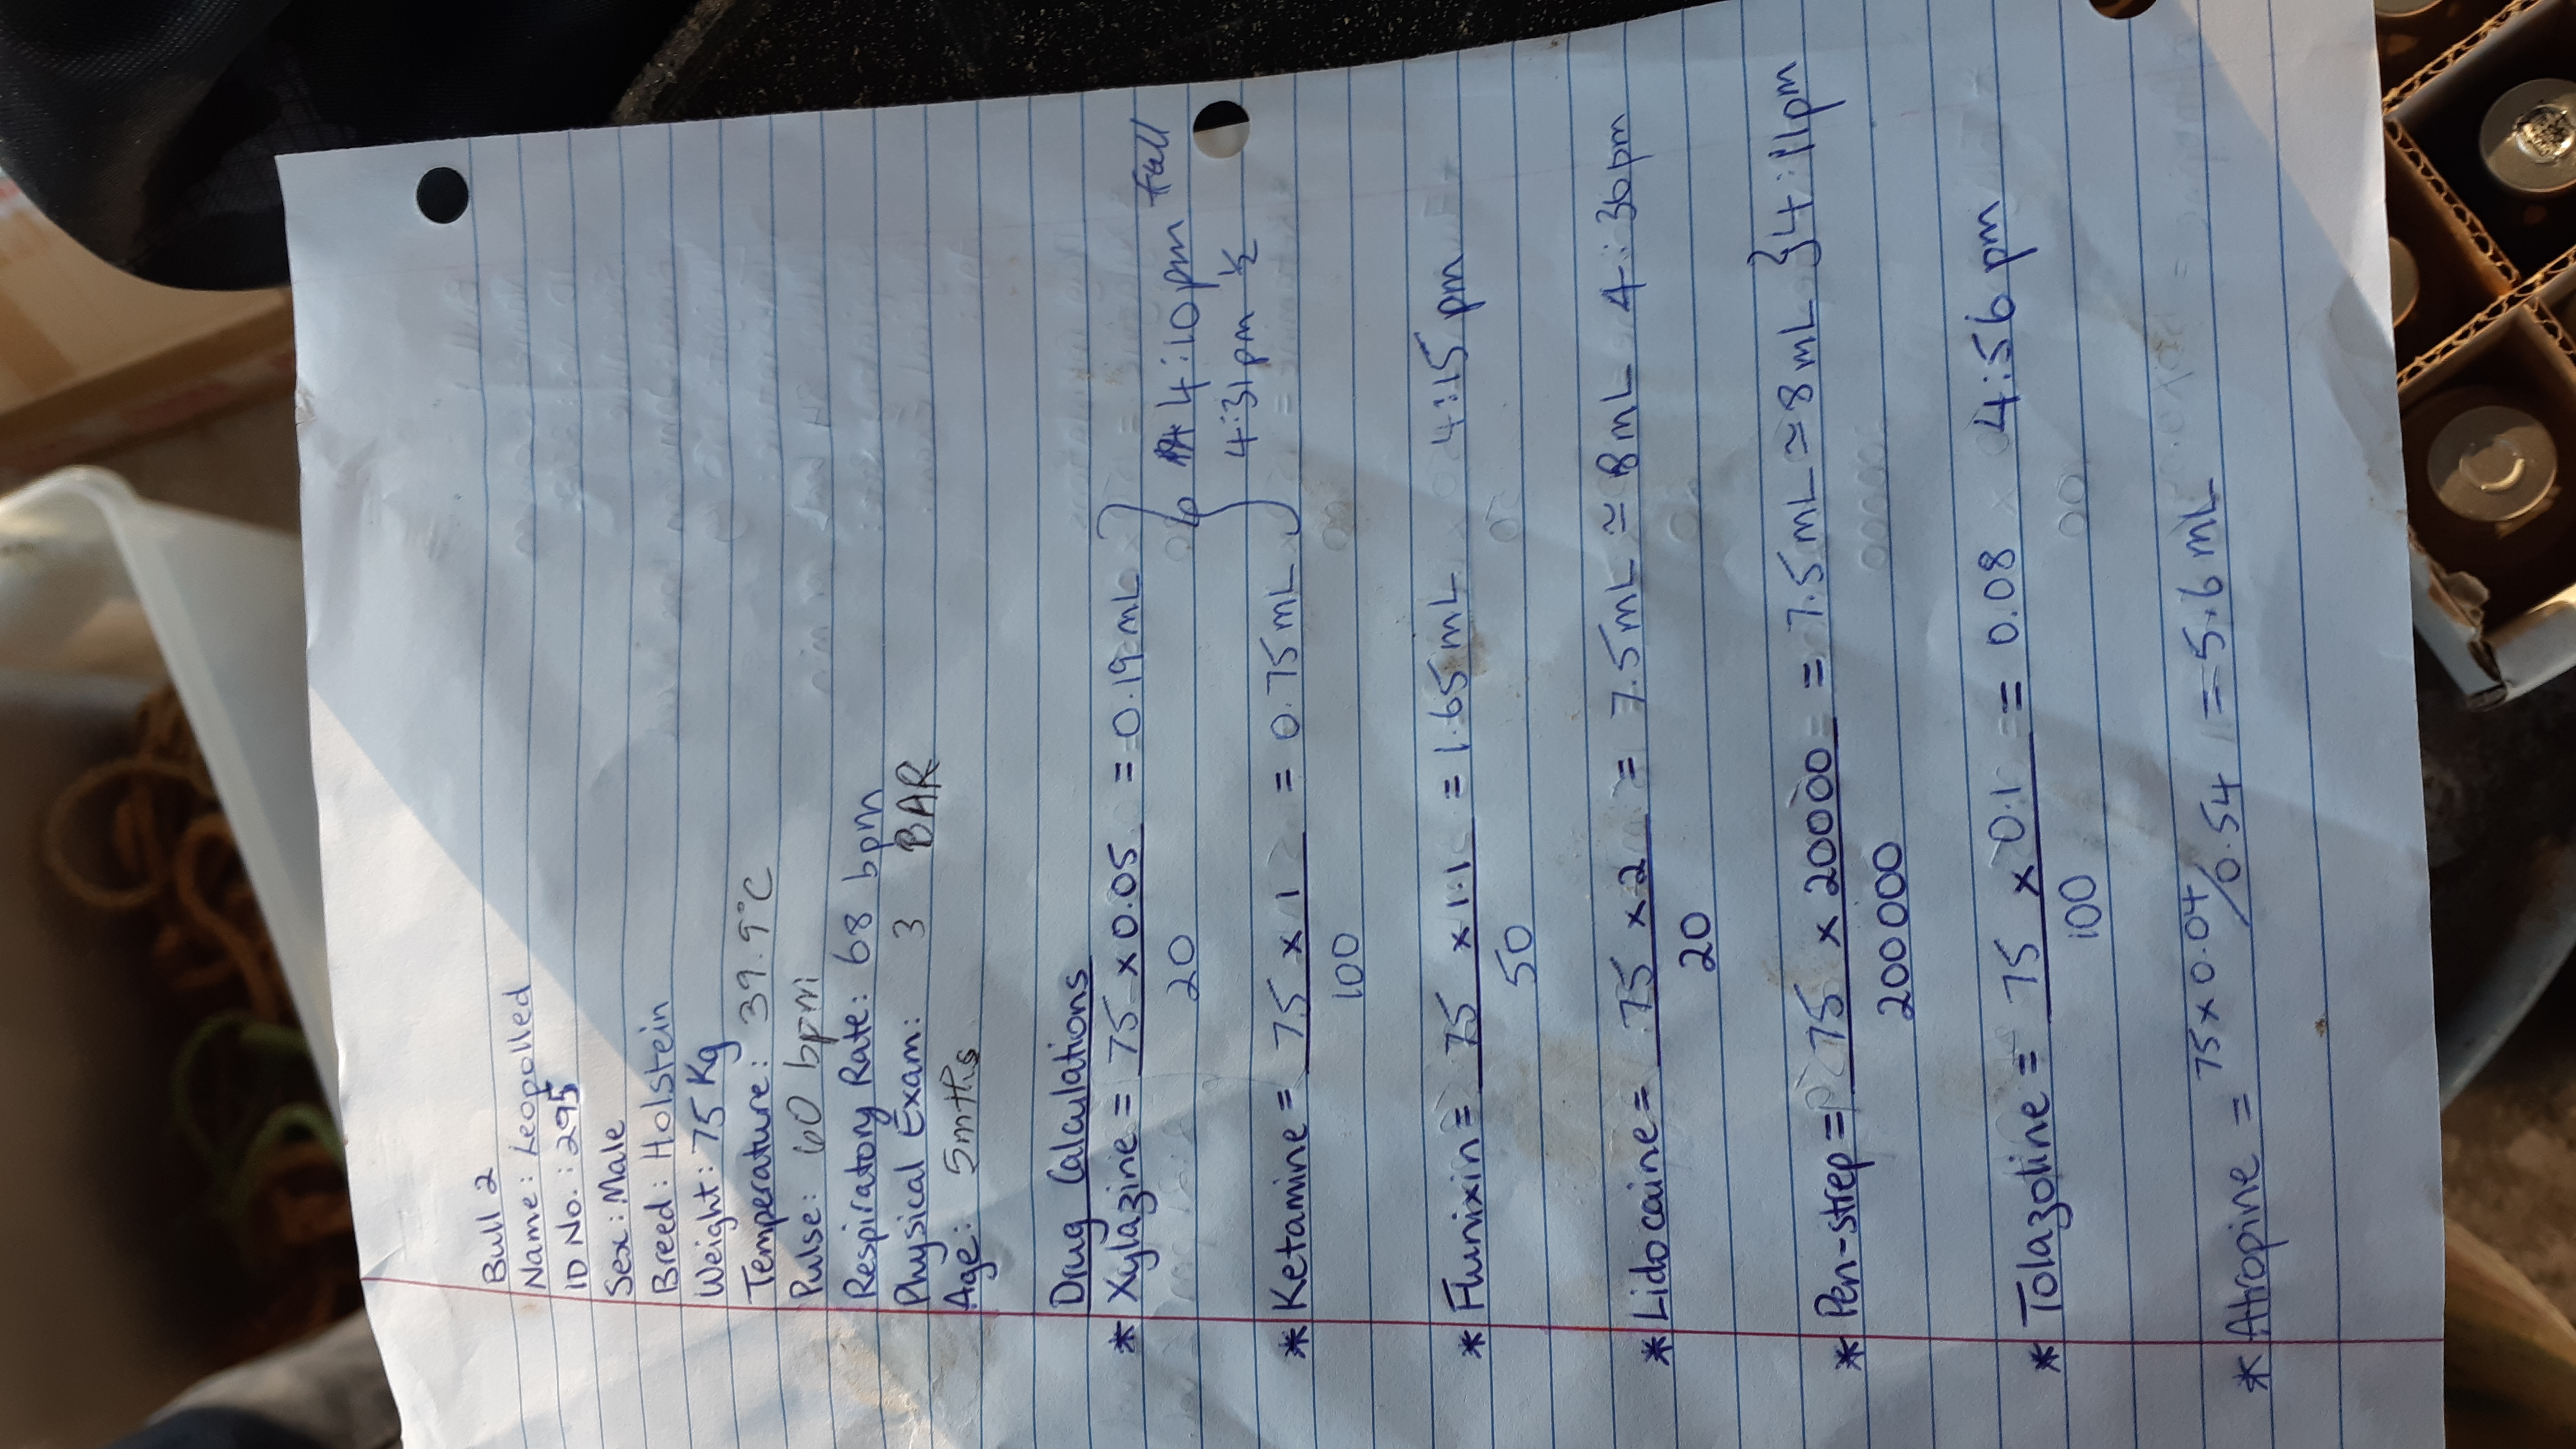 Bull 2
Name: Leopolled
ID No.: 295
Sex: Male
Breed: Holstein
Weight: 75 Kg
Temperature: 39.9°C
Pulse: 60 bpm
Respiratory Rate: 68 bpm
Physical Exam: 3 BAR
Age: 5mths
Drug Calculations
* Xylazine = 75 x 0.05 = 0.19 mL } 4:10pm full
20
4:31pm ½
* Ketamine = 75 x 1 = 0.75 mL }
100
* Flunixin = 75 x 1.1 = 1.65 mL 4:15 pm
50
* Lidocaine = 75 x 2 = 7.5 mL ≃ 8 mL 4:30pm
20
* Pen-strep = 75 x 20000 = 7.5 mL ≃ 8 mL } 4:11pm
200000
* Tolazoline = 75 x 0.1 = 0.08 4:56 pm
100
* Atropine = 75 x 0.04/0.54 = 5.6 mL